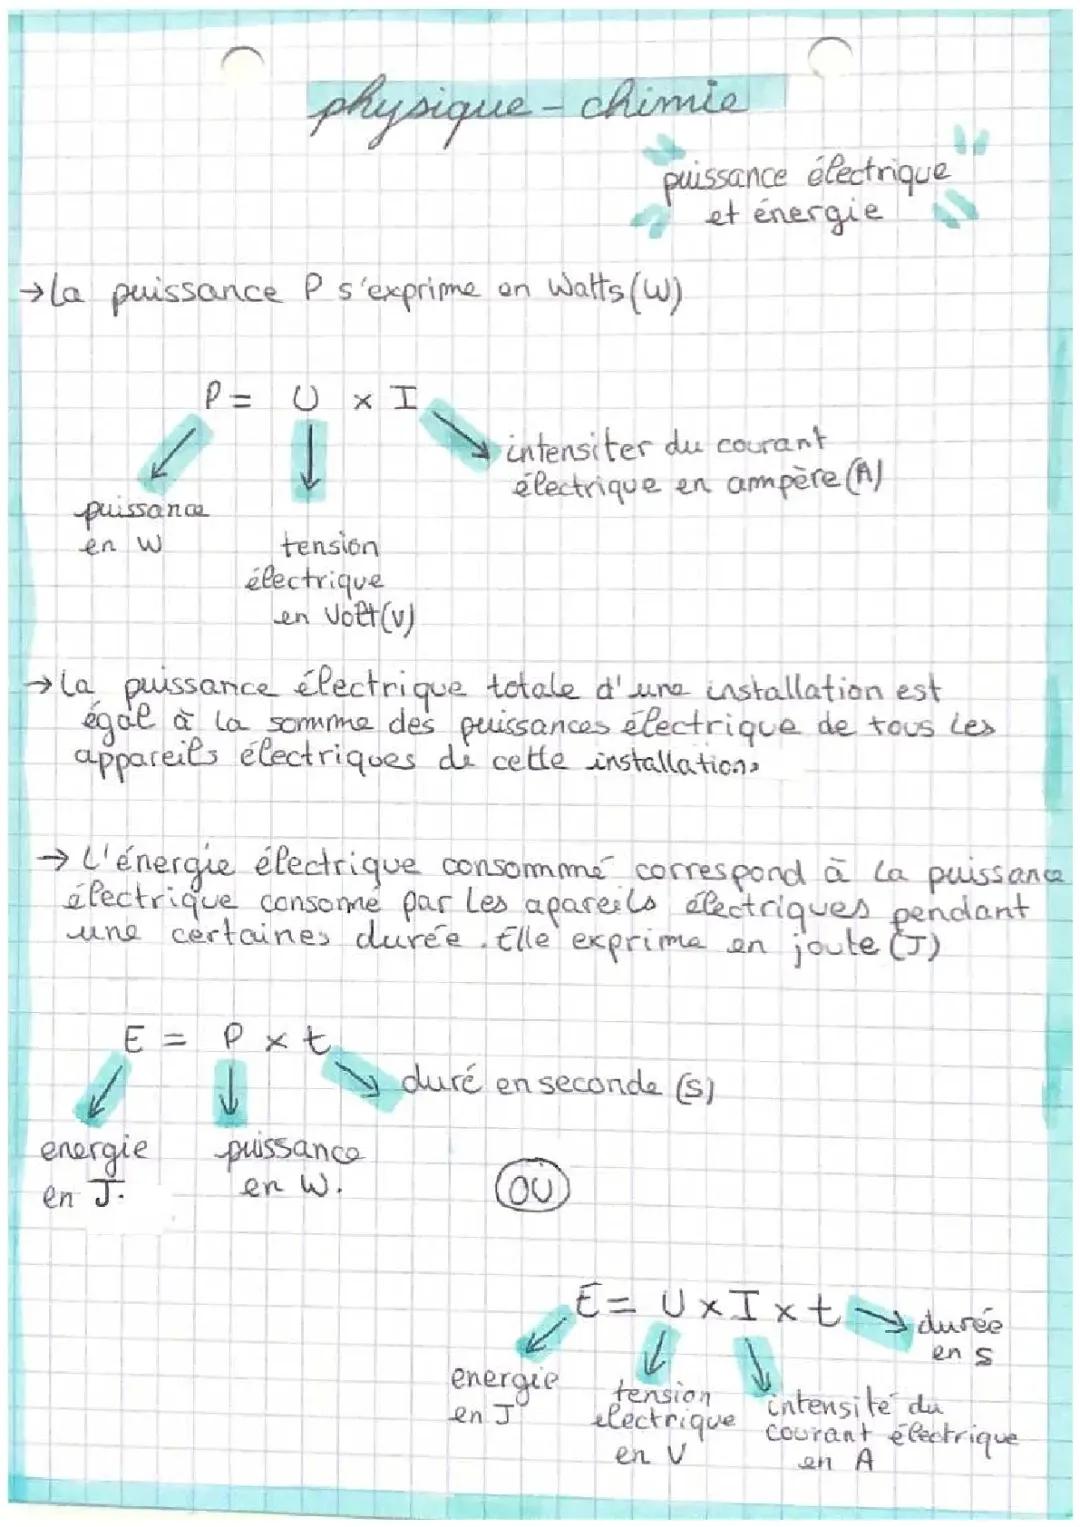 physique - chimie
puissance électrique
et énergie
→ La puissance P s'exprime en Watts (W)
P = U × I
intensiter du courant
électrique en ampère (A)
puissance
en W
tension
électrique
en Volt (V)
→ La puissance électrique totale d'une installation est
égal à la somme des puissances électrique de tous les
appareils électriques de cette installation.
→ L'énergie électrique consommé correspond à la puissance
électrique consomé par les apareils électriques pendant
une certaines durée. Elle exprime en joule (J)
E = P × t
duré en seconde (s)
energie
en J.
puissance
en W.
OU
E = U × I × t
durée
en s
energie
en J
tension
electrique
en V
intensité du
courant électrique
en A